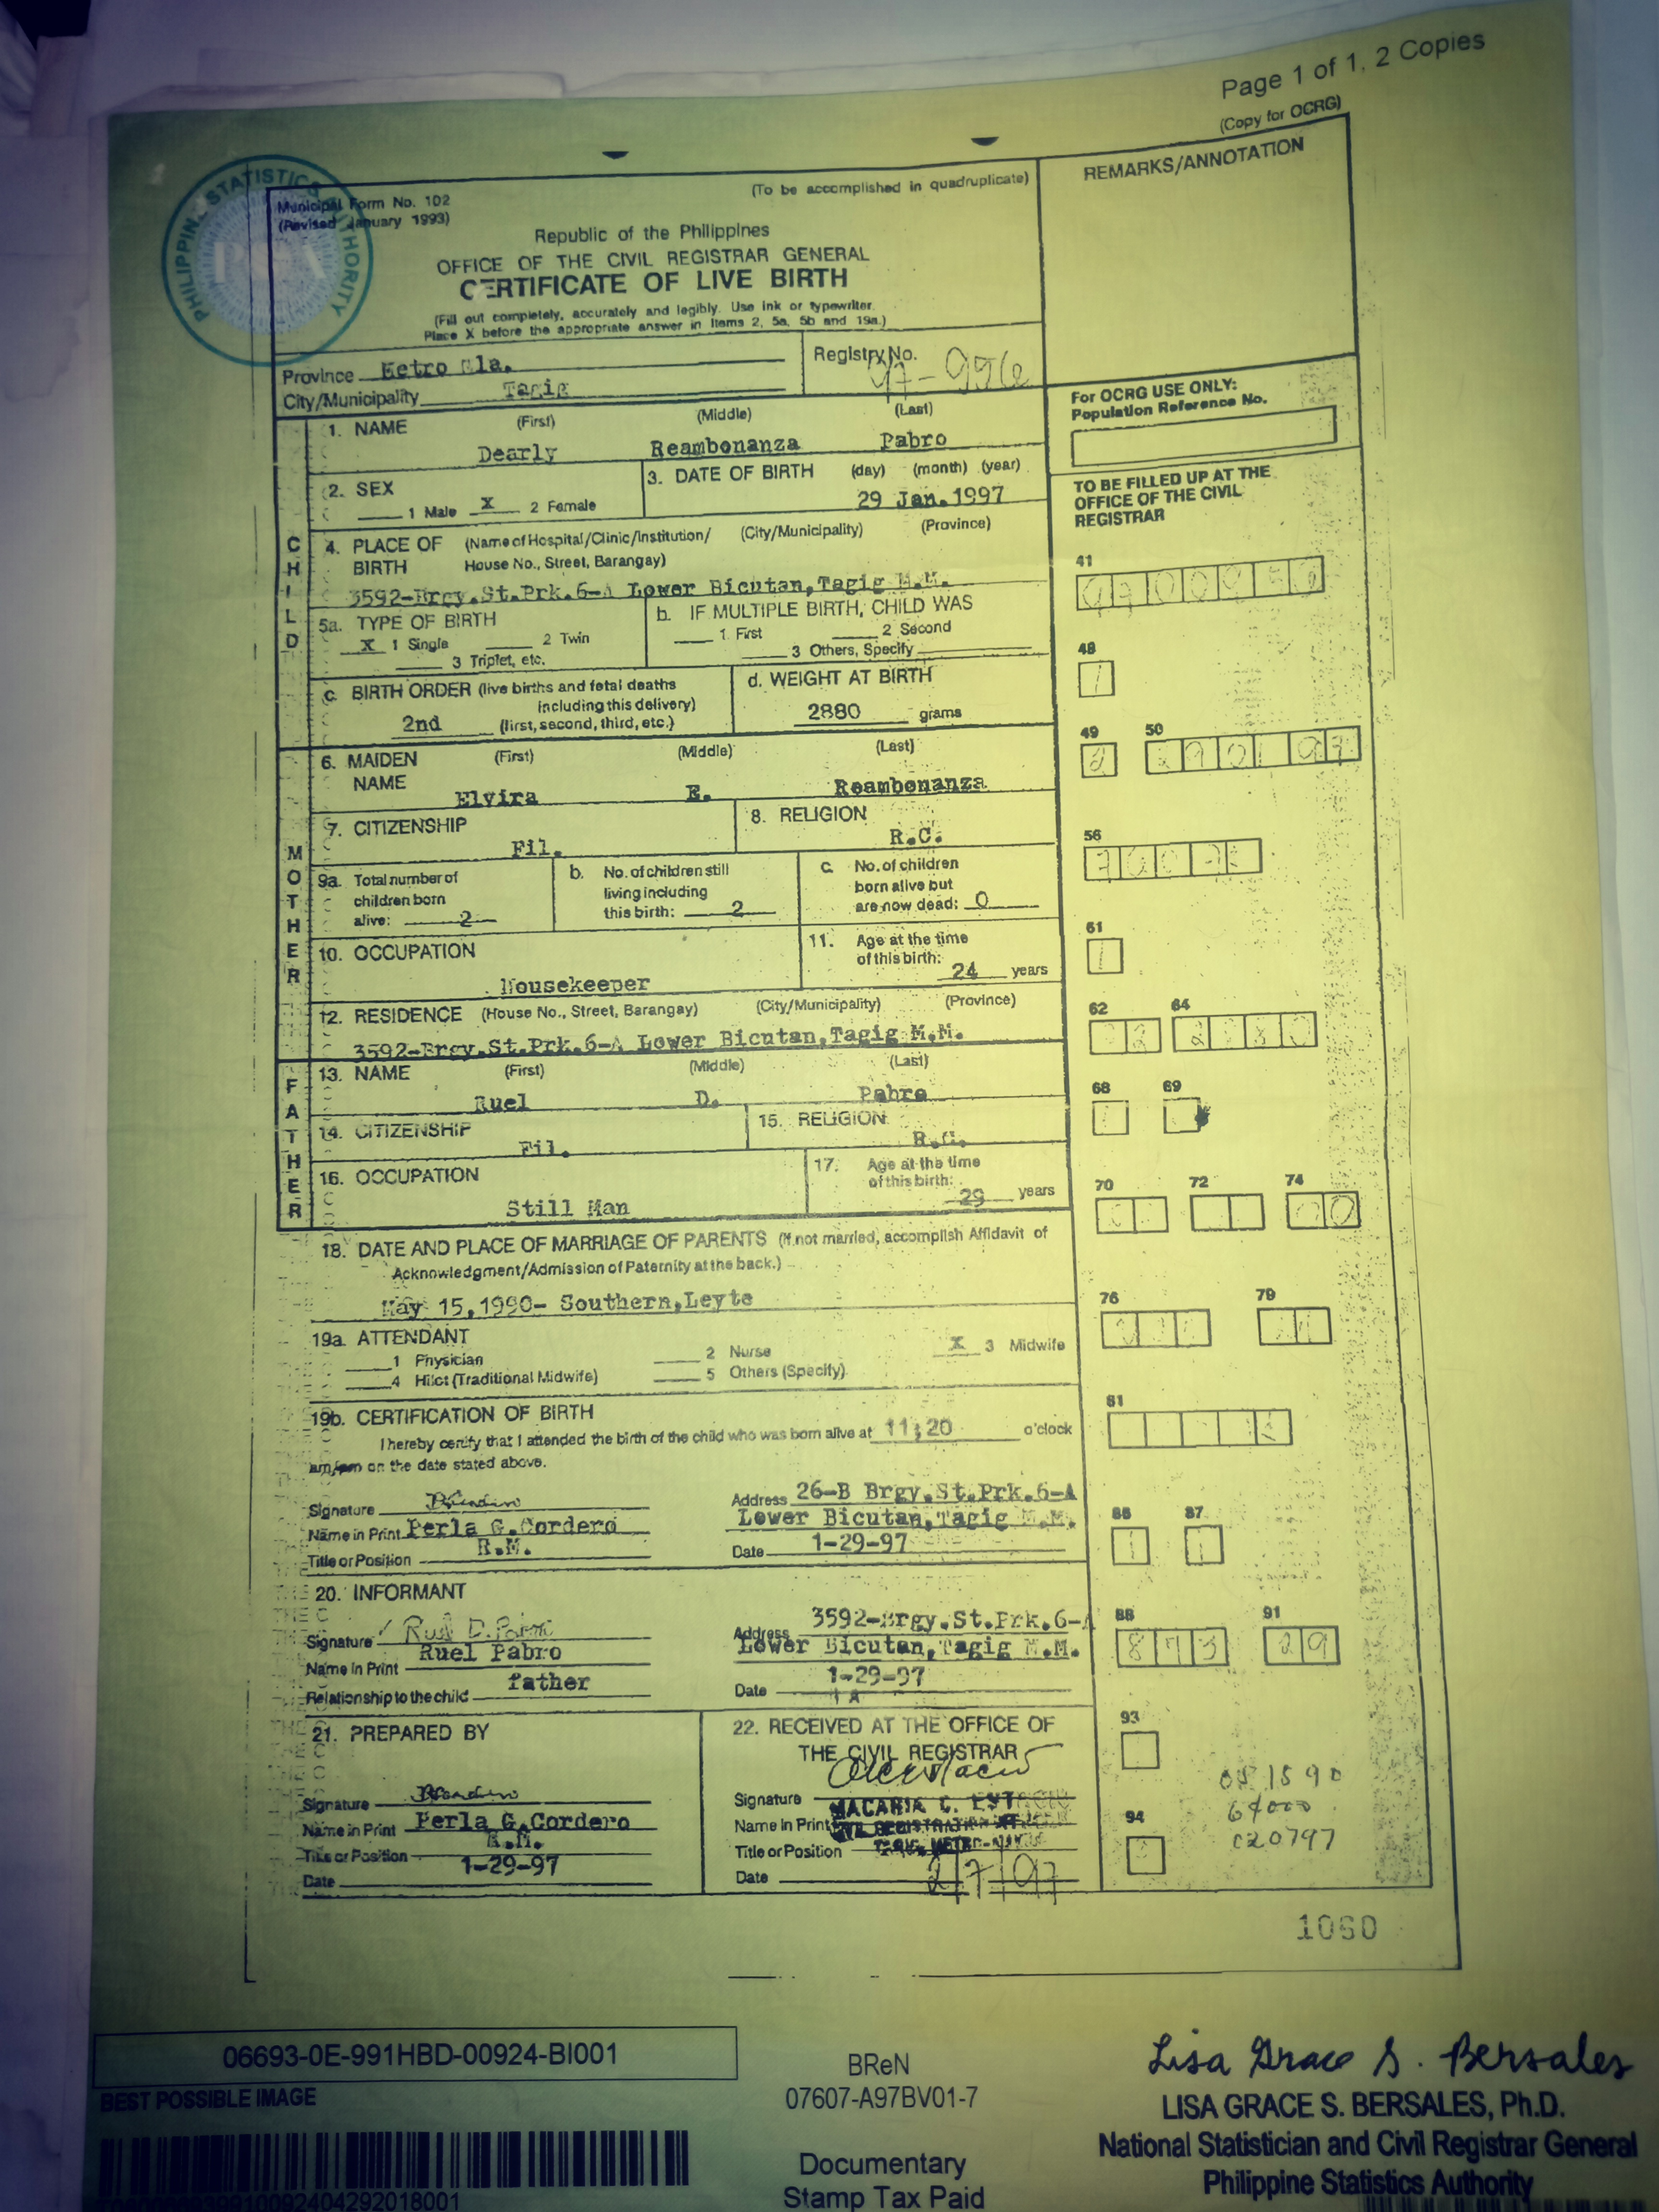 Page 1 of 1, 2 Copies
(Copy for OCRG)
PHILIPPINE STATISTICS AUTHORITY
Municipal Form No. 102
(Revised January 1993)
(To be accomplished in quadruplicate)
REMARKS/ANNOTATION
Republic of the Philippines
OFFICE OF THE CIVIL REGISTRAR GENERAL
CERTIFICATE OF LIVE BIRTH
(Fill out completely, accurately and legibly. Use ink or typewriter.
Place X before the appropriate answer in items 2, 5a, 5b and 19a.)
Province
Registry No. 97-996
City/Municipality Tagig
For OCRG USE ONLY:
Population Reference No.
CHILD
1. NAME (First) (Middle) (Last)
Dearly Reambonanza Pabro
2. SEX
1 Male X 2 Female
3. DATE OF BIRTH (day) (month) (year)
29 Jan. 1997
TO BE FILLED UP AT THE
OFFICE OF THE CIVIL
REGISTRAR
4. PLACE OF BIRTH (Name of Hospital/Clinic/Institution/ (City/Municipality) (Province)
House No., Street, Barangay)
3592-Brgy.St.Prk.6-A Lower Bicutan,Tagig M.M.
41
5a. TYPE OF BIRTH
X 1 Single 2 Twin
3 Triplet, etc.
b. IF MULTIPLE BIRTH, CHILD WAS
1 First 2 Second
3 Others, Specify
48
1
c. BIRTH ORDER (live births and fetal deaths
including this delivery)
2nd (first, second, third, etc.)
d. WEIGHT AT BIRTH
2880 grams
49 50
2 290197
MOTHER
6. MAIDEN NAME (First) (Middle) (Last)
Elvira E. Reambonanza
7. CITIZENSHIP
Fil.
8. RELIGION
R.C.
56
9a. Total number of
children born
alive: 2
b. No. of children still
living including
this birth: 2
c. No. of children
born alive but
are now dead: 0
61
1
10. OCCUPATION
Housekeeper
11. Age at the time
of this birth:
24 years
12. RESIDENCE (House No., Street, Barangay) (City/Municipality) (Province)
3592-Brgy.St.Prk.6-A Lower Bicutan,Tagig M.M.
62 64
FATHER
13. NAME (First) (Middle) (Last)
Ruel D. Pabro
68 69
14. CITIZENSHIP
Fil.
15. RELIGION
R.C.
16. OCCUPATION
Still Man
17. Age at the time
of this birth:
29 years
70 72 74
18. DATE AND PLACE OF MARRIAGE OF PARENTS (If not married, accomplish Affidavit of
Acknowledgment/Admission of Paternity at the back.)
May 15,1990- Southern,Leyte
76 79
19a. ATTENDANT
1 Physician 2 Nurse X 3 Midwife
4 Hilot (Traditional Midwife) 5 Others (Specify)
81
19b. CERTIFICATION OF BIRTH
I hereby certify that I attended the birth of the child who was born alive at 11:20 o'clock
am/pm on the date stated above.
Signature
Name in Print Perla G.Cordero
Title or Position R.M.
Address 26-B Brgy.St.Prk.6-A
Lower Bicutan,Tagig M.M.
Date 1-29-97
86 87
1 1
20. INFORMANT
Signature Ruel D. Pabro
Name in Print Ruel Pabro
Relationship to the child father
Address 3592-Brgy.St.Prk.6-A
Lower Bicutan,Tagig M.M.
Date 1-29-97
88 91
873 29
21. PREPARED BY
Signature
Name in Print Perla G.Cordero
Title or Position R.M.
Date 1-29-97
22. RECEIVED AT THE OFFICE OF
THE CIVIL REGISTRAR
Signature
Name in Print MACARIA C.
Title or Position
Date 2/7/97
93
94
051590
64000
020797
1060
06693-0E-991HBD-00924-BI001
BEST POSSIBLE IMAGE
BReN
07607-A97BV01-7
Documentary
Stamp Tax Paid
Lisa Grace S. Bersales
LISA GRACE S. BERSALES, Ph.D.
National Statistician and Civil Registrar General
Philippine Statistics Authority